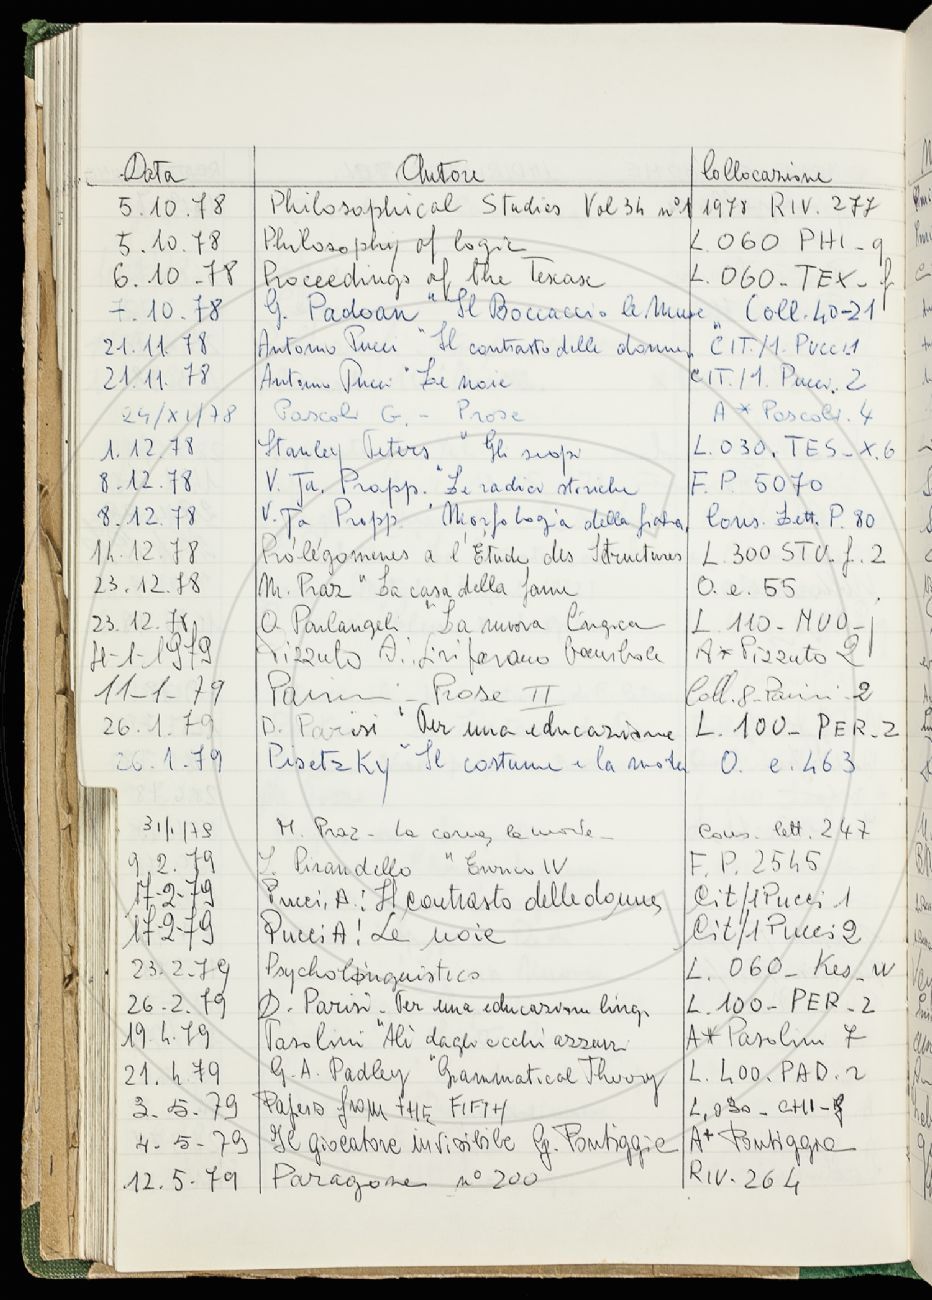 Data Autore Collocazione
5.10.78 Philosophical Studies Vol 34 n°1 1978 RIV. 277
5.10.78 Philosophy of logic L.060 PHI-q
6.10-78 Proceedings of the Texas L.060-TEX-f
7.10.78 G. Padoan "Il Boccaccio le Muse Coll.40-21
21.11.78 Antonio Pucci "Il contrasto delle donne" CIT./1. Pucci.1
21.11.78 Antonio Pucci "Le noie CIT./1. Pucci. 2
24/XI/78 Pascoli G. - Prose A* Pascoli. 4
1.12.78 Stanley Peters "Gli scopi L.030.TES-X.6
8.12.78 V. Ja. Propp. "Le radici storiche F.P. 5070
8.12.78 V. Ja Propp. "Morfologia della fiaba Cons. Lett. P. 80
14.12.78 Prólégomenes a l'Étude des Structures L.300 STU.f.2
23.12.78 M. Praz "La casa della fama O.e.55
23.12.78 O. "La nuova L. 110-NUO-j
4-1-1979 Pizzuto A.: Si riparano bambole A* Pizzuto 2
11-1-79 Parini - Prose II Coll.8-Parini-2
26.1.79 D. Parisi "Per una educazione L. 100-PER-2
26.1.79 Pisetzky "Il costume e la moda O. e.463
31/1/79 M. Praz - La carne, la morte - Cons. lett. 247
9.2.79 L. Pirandello "Enrico IV F.P. 2545
17-2-79 Pucci, A.: Il contrasto delle donne, Cit/1Pucci 1
17-2-79 Pucci A: Le noie Cit/1Pucci2
23.2.79 Psycholinguistico L. 060-Kes-w
26.2.79 D. Parisi - Per una educazione ling. L.100-PER-2
19.4.79 Pasolini "Alì dagli occhi azzurri A* Pasolini 7
21.4.79 G.A. Padley "Grammatical Theory L.400.PAD.2
3-5-79 Papers from THE FIFTH L.030-CHI-f
4-5-79 Il giocatore invisibile G. Pontiggia A* Pontiggia
12.5.79 Paragone n° 200 RIV. 264